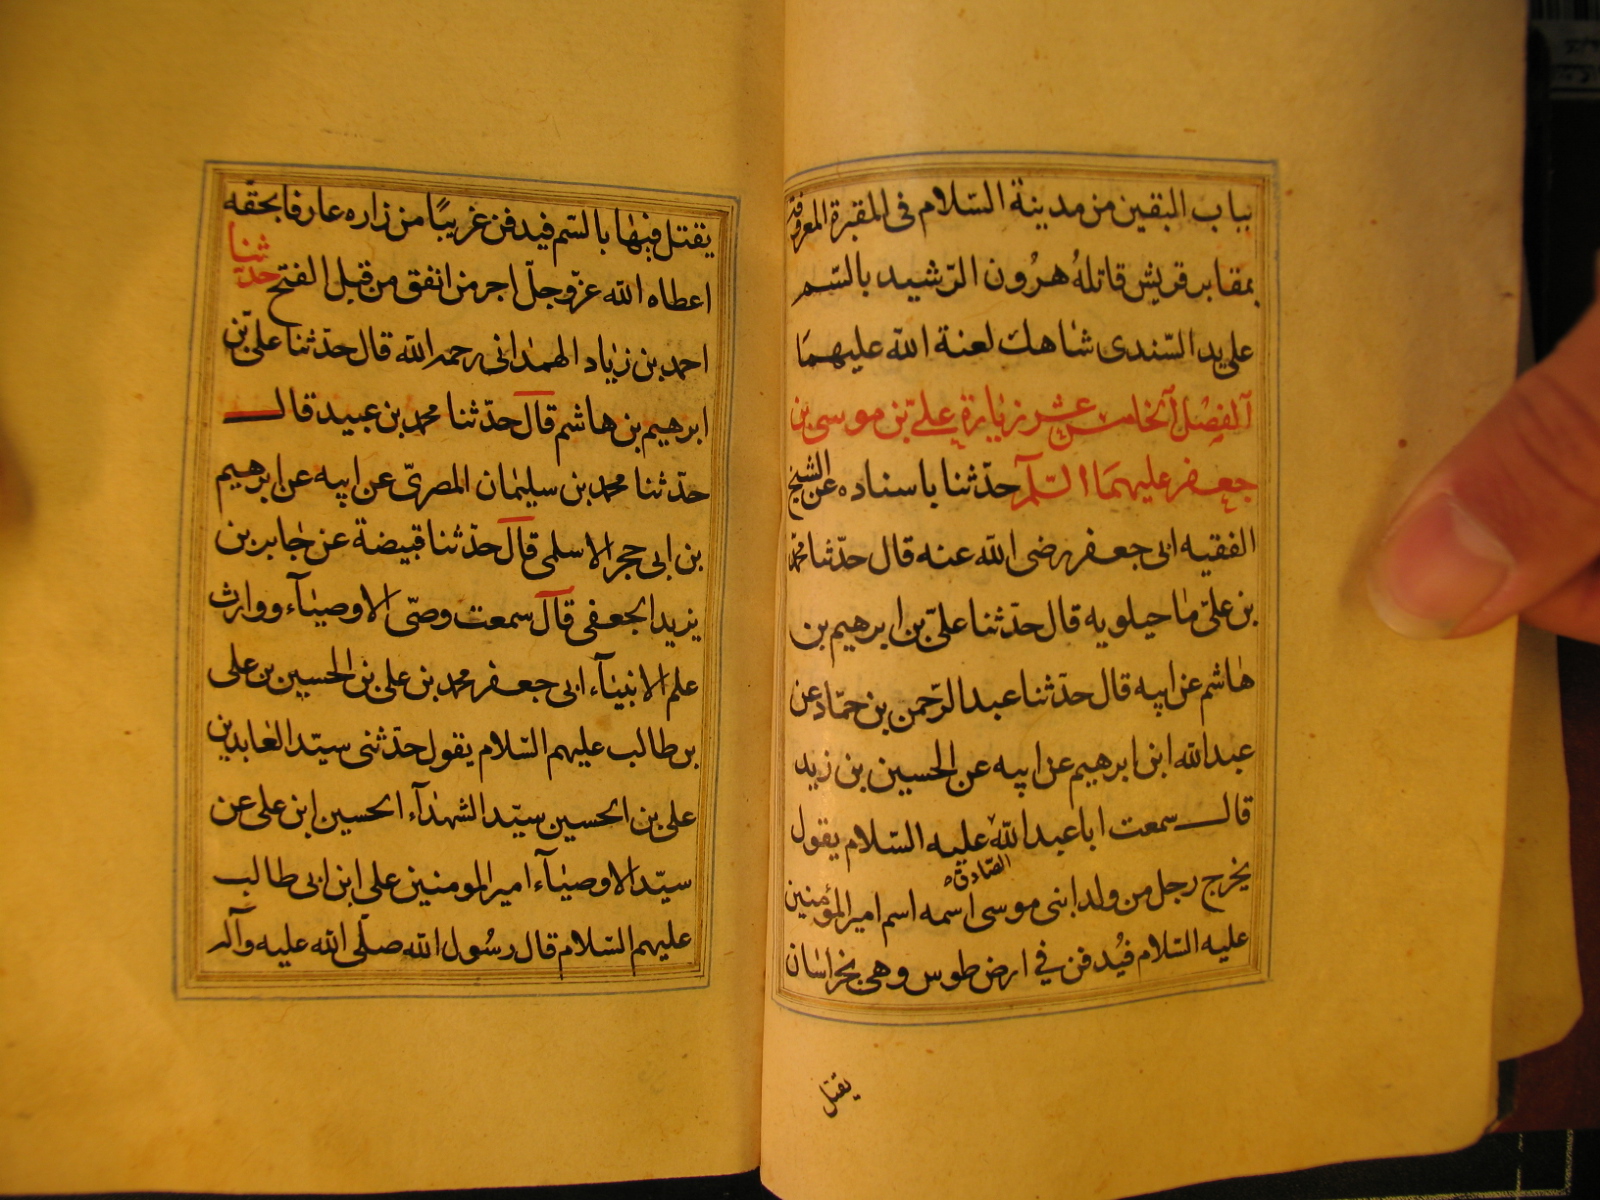 بباب النقين من مدينة السّلام فى المقبرة المعروفة
بمقابر قريش قاتلهُ هرُون الرّشيد بالسّم
على يد السّندى شاهك لعنة الله عليهمَا
اَلفصْل اَلخامس عشر زيارة على بن موسى بن
جعفر عليهمَا السّلم حدّثنا باسناده عن الشيخ
الفقيه ابى جعفر رضى الله عنه قال حدّثنا محمّد
بن علىّ ماحيلويه قال حدّثنا علىّ بن ابرهيم بن
هاشم عن ابيه قال حدّثنا عبد الرّحمن بن حمّاد عن
عبد الله ابن ابرهيم عن ابيه عن الحسين بن زيد
قال سمعت ابا عبد الله عليه السّلام يقول
الصّادق
يخرج رجل من ولد ابنى موسى اسمه اسم امير المؤمنين
عليه السّلام فيُدفن في ارض طوس وهى بخراسان
يقتل
يقتل فيها بالسّم فيدفن غريبًا من زاره عارفا بحقّه
اعطاه الله عزّ وجلّ اجر من انفق من قبل الفتح حدّثنا
احمد بن زياد الهمدانى رحمه الله قال حدّثنا علىّ بن
ابرهيم بن هاشم قال حدّثنا محمد بن عبيد قال
حدّثنا محمد بن سليمان المصرىّ عن ابيه عن ابرهيم
بن ابى حجر الاسلمى قال حدّثنا قبيضة عن جابر بن
يزيد الجعفى قال سمعت وصىّ الاوصيآء ووارث
علم الانبيآء ابى جعفر محمد بن على بن الحسين بن على
بن طالب عليهم السّلام يقول حدّثنى سيّد العابدين
على بن الحسين سيّد الشهدآء الحسين ابن على عن
سيّد الاوصيآء امير المومنين على ابن ابى طالب
عليهم السّلام قال رسُول الله صلّى الله عليه وآله